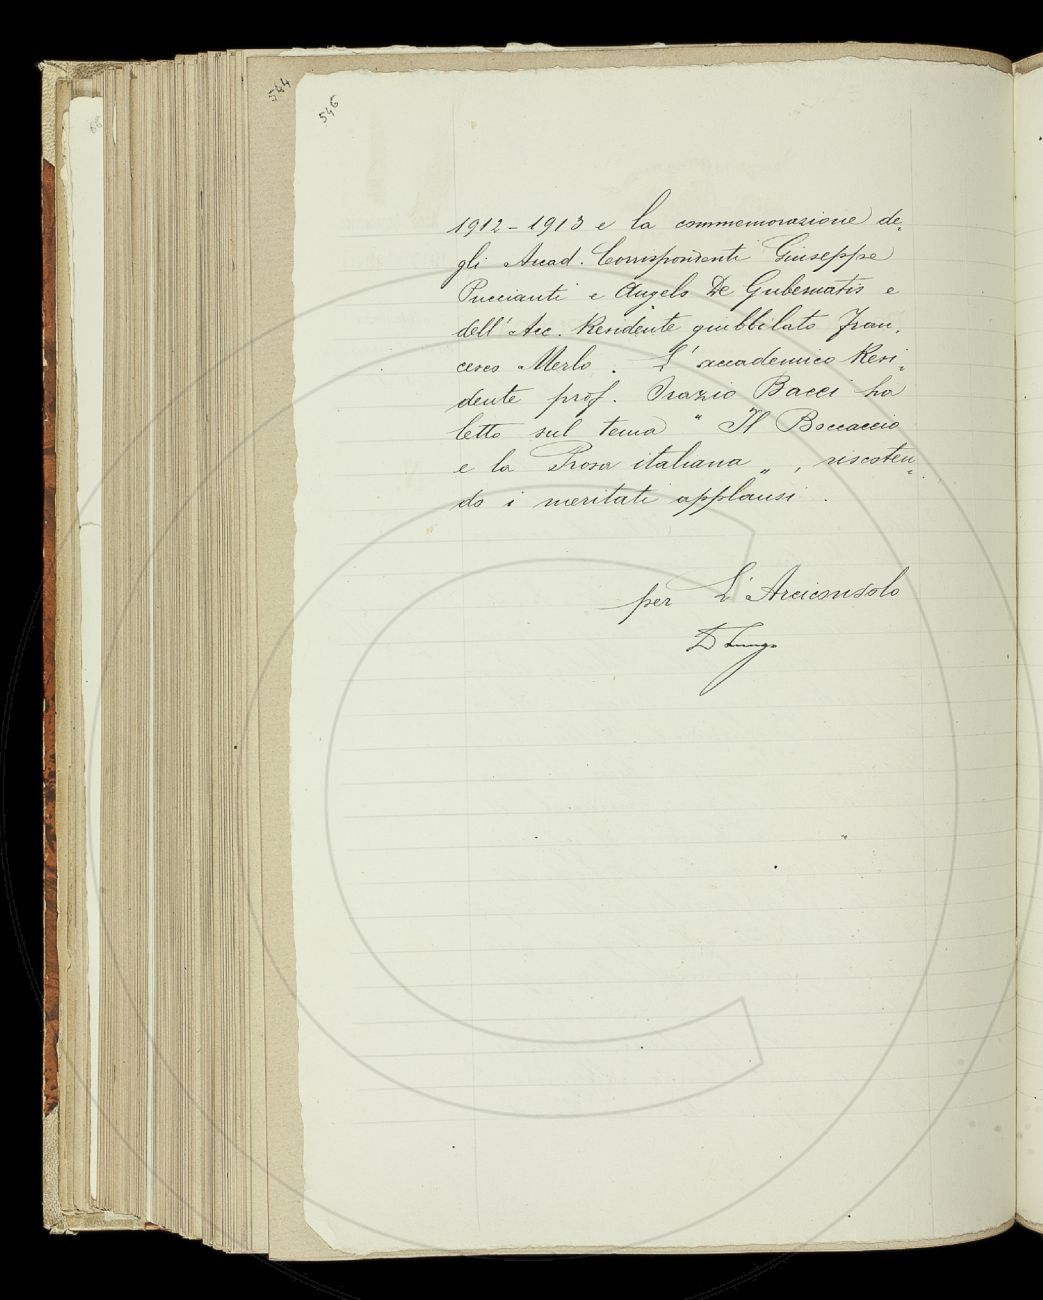 544
546
1912-1913 e la commemorazione de=
gli Accad. Corrispondenti Giuseppe
Puccianti e Angelo De Gubernatis e
dell'Acc. Residente giubbilato Fran,
cesco Merlo. L'accademico Resi=
dente prof. Orazio Bacci ha
letto sul tema " Il Boccaccio
e la Prosa italiana „ , riscoten=
do i meritati applausi .
per L'Arciconsolo
D Lungo